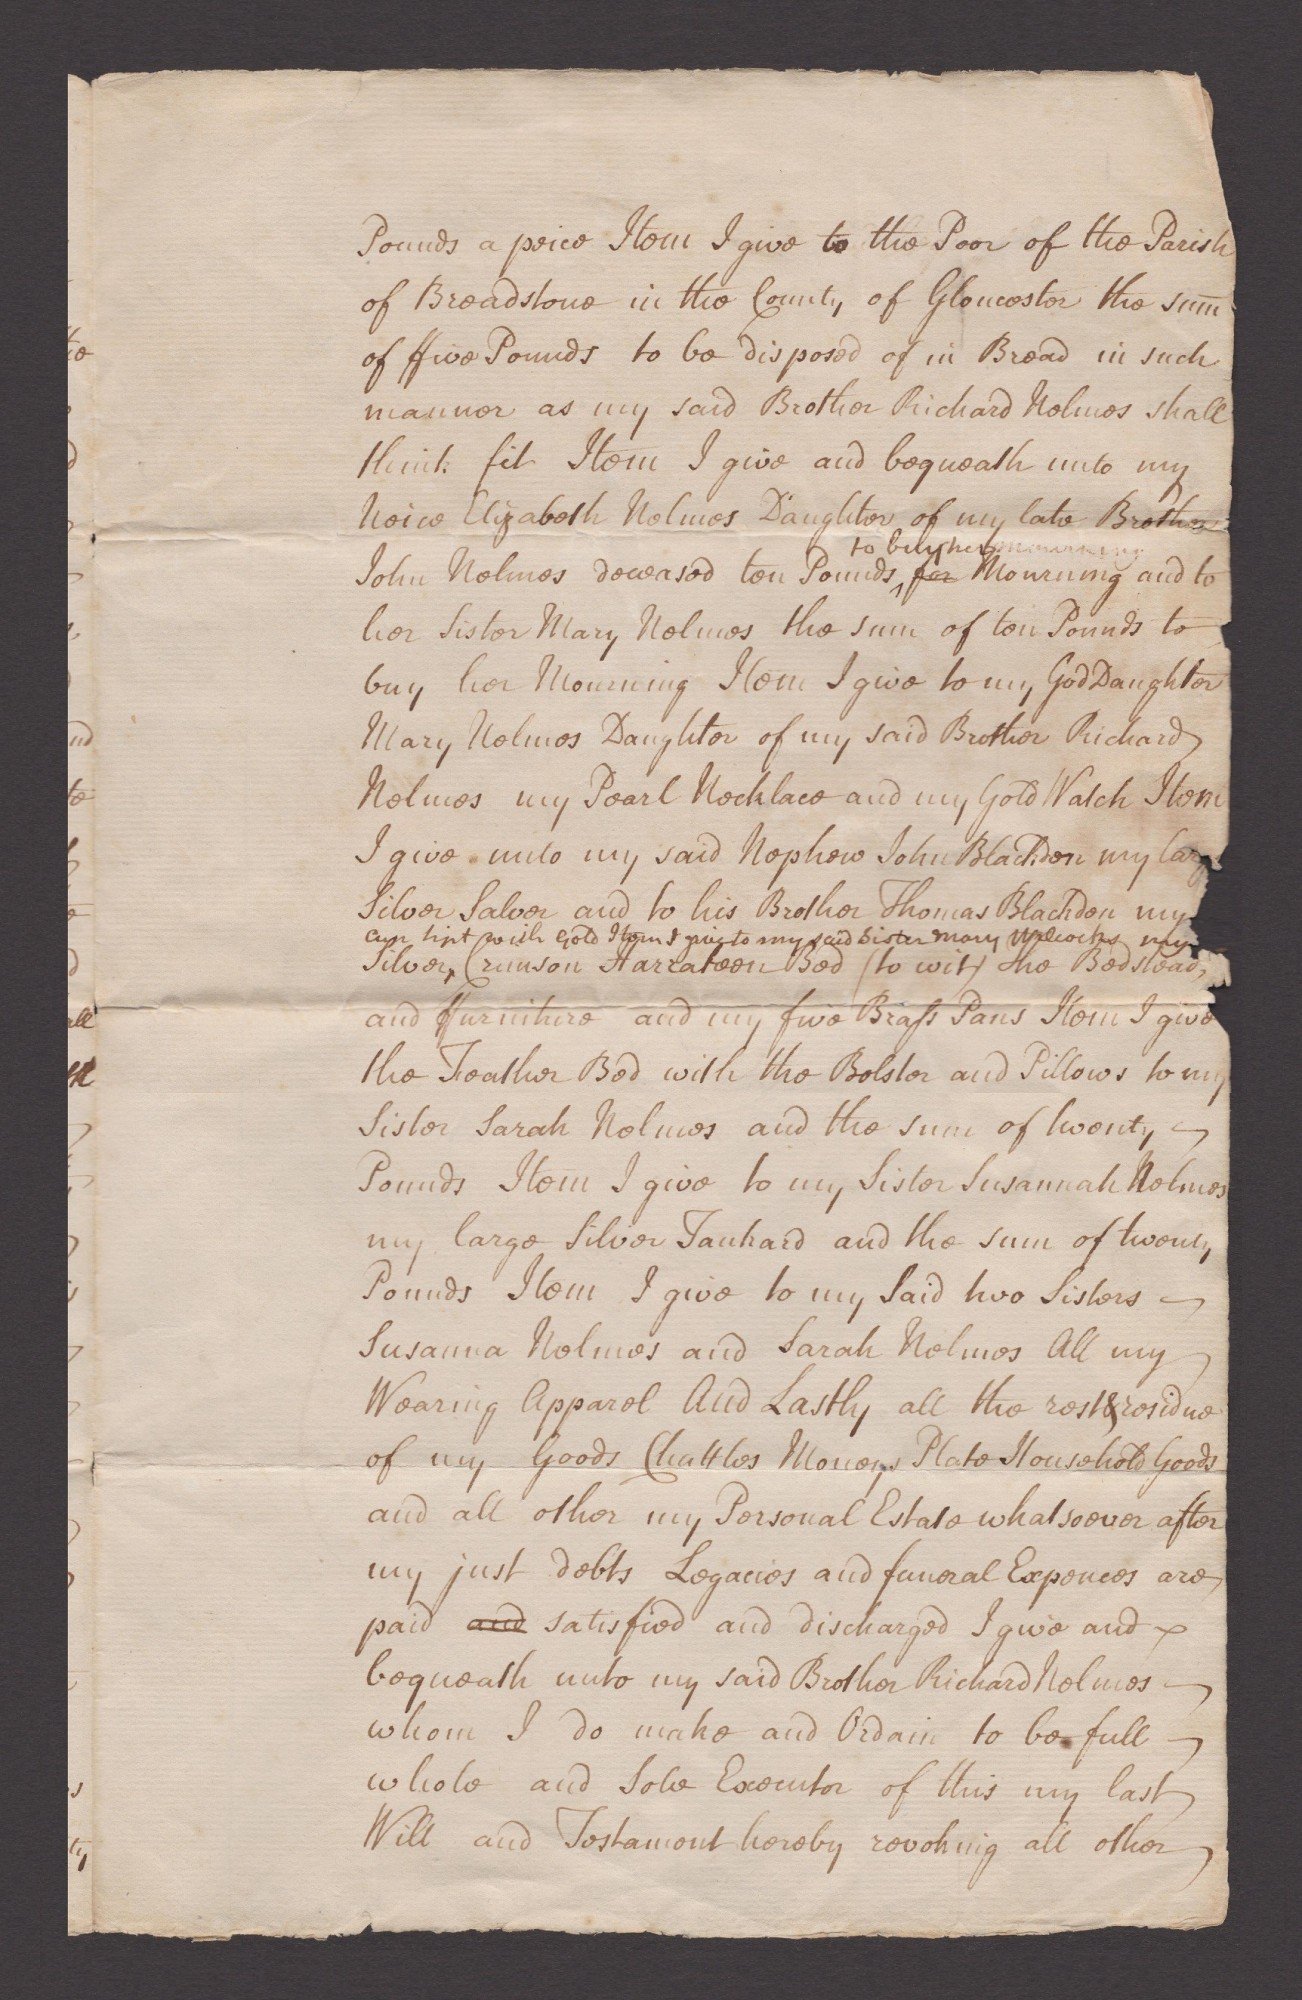 Pounds a peice Item I give to the Poor of the Parish
of Breadstone in the County of Gloucester the sum
of ffive Pounds to be disposed of in Bread in such
manner as my said Brother Richard Nelmes shall
think fit Item I give and bequeath unto my
Neice Elizabeth Nelmes Daughter of my late Brother
to buy her mourning
John Nelmes deceased ten Pounds ‸ for Mourning and to
her Sister Mary Nelmes the sum of ten Pounds to
buy her Mourning Item I give to my GodDaughter
Mary Nelmes Daughter of my said Brother Richard
Nelmes my Pearl Necklace and my Gold Watch Item
I give unto my said Nephew John Blachdon my larg
Silver Salver and to his Brother Thomas Blachdon my
cup tipt with Gold Item I give to my said Sister Mary Wilcocks my
Silver ‸ Crimson Harrateen Bed (to wit) the Bedstead
and ffurniture and my five Brass Pans Item I give
the Feather Bed with the Bolster and Pillows to my
Sister Sarah Nelmes and the sum of twenty
Pounds Item I give to my Sister Susannah Nelmes
my large Silver Tankard and the sum of twenty
Pounds Item I give to my Said two Sisters
Susanna Nelmes and Sarah Nelmes All my
Wearing Apparel And Lastly all the rest & residue
of my Goods Chattles Moneys Plate Household Goods
and all other my Personal Estate whatsoever after
my just debts Legacies and funeral Expences are
paid and satisfied and discharged I give and
bequeath unto my said Brother Richard Nelmes
whom I do make and Ordain to be full
whole and Sole Executor of this my last
Will and Testament hereby revoking all other